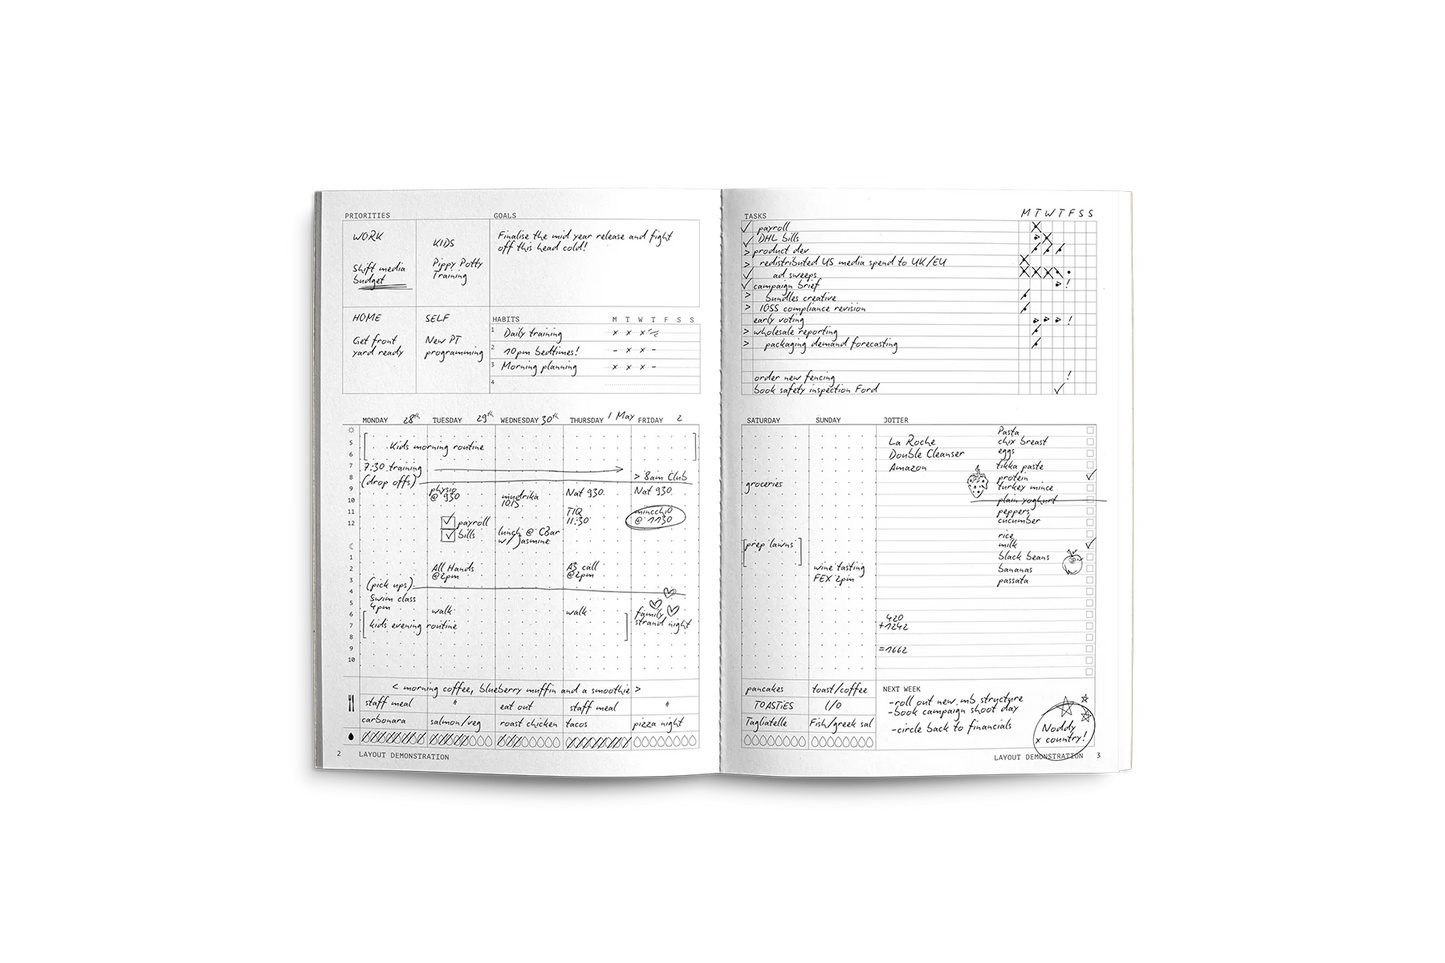 PRIORITIES
WORK
Shift media
budget
KIDS
Pippy Potty
Training
HOME
Get front
yard ready
SELF
New PT
programming
GOALS
Finalise the mid year release and fight
off this head cold!
HABITS M T W T F S S
1 Daily training x x x
2 10pm bedtimes! - x x -
3 Morning planning x x x -
4
MONDAY 28th TUESDAY 29th WEDNESDAY 30th THURSDAY 1 May FRIDAY 2
5
6
7
8
9
10
11
12
1
2
3
4
5
6
7
8
9
10
Kids morning routine
7:30 training
(drop offs)
> 8am Club
physio
@ 930
mudrika
1015
Nat 930
Nat 930
TIQ
11:30
@ 1130
payroll
bills
lunch @ CBar
w/ Jasmine
All Hands
@2pm
A3 call
@2pm
(pick ups)
Swim class
4pm
walk
walk
family
strand night
kids evening routine
< morning coffee, blueberry muffin and a smoothie >
staff meal " eat out staff meal "
carbonara salmon/veg roast chicken tacos pizza night
2 LAYOUT DEMONSTRATION
TASKS M T W T F S S
payroll
DHL bills
> product dev
> redistributed US media spend to UK/EU
ad sweeps
campaign brief
> bundles creative
> IOSS compliance revision
early voting
> wholesale reporting
> packaging demand forecasting
order new fencing
book safety inspection Ford
SATURDAY SUNDAY JOTTER
groceries
prep lawns
wine tasting
FEX 2pm
La Roche
Double Cleanser
Amazon
Pasta
chix breast
eggs
tikka paste
protein
turkey mince
plain yoghurt
peppers
cucumber
rice
milk
black beans
bananas
passata
420
+1242
=1662
pancakes toast/coffee
TOASTIES L/O
Tagliatelle Fish/greek sal
NEXT WEEK
-roll out new mb structure
-book campaign shoot day
-circle back to financials
Noddy
x country!
LAYOUT DEMONSTRATION 3